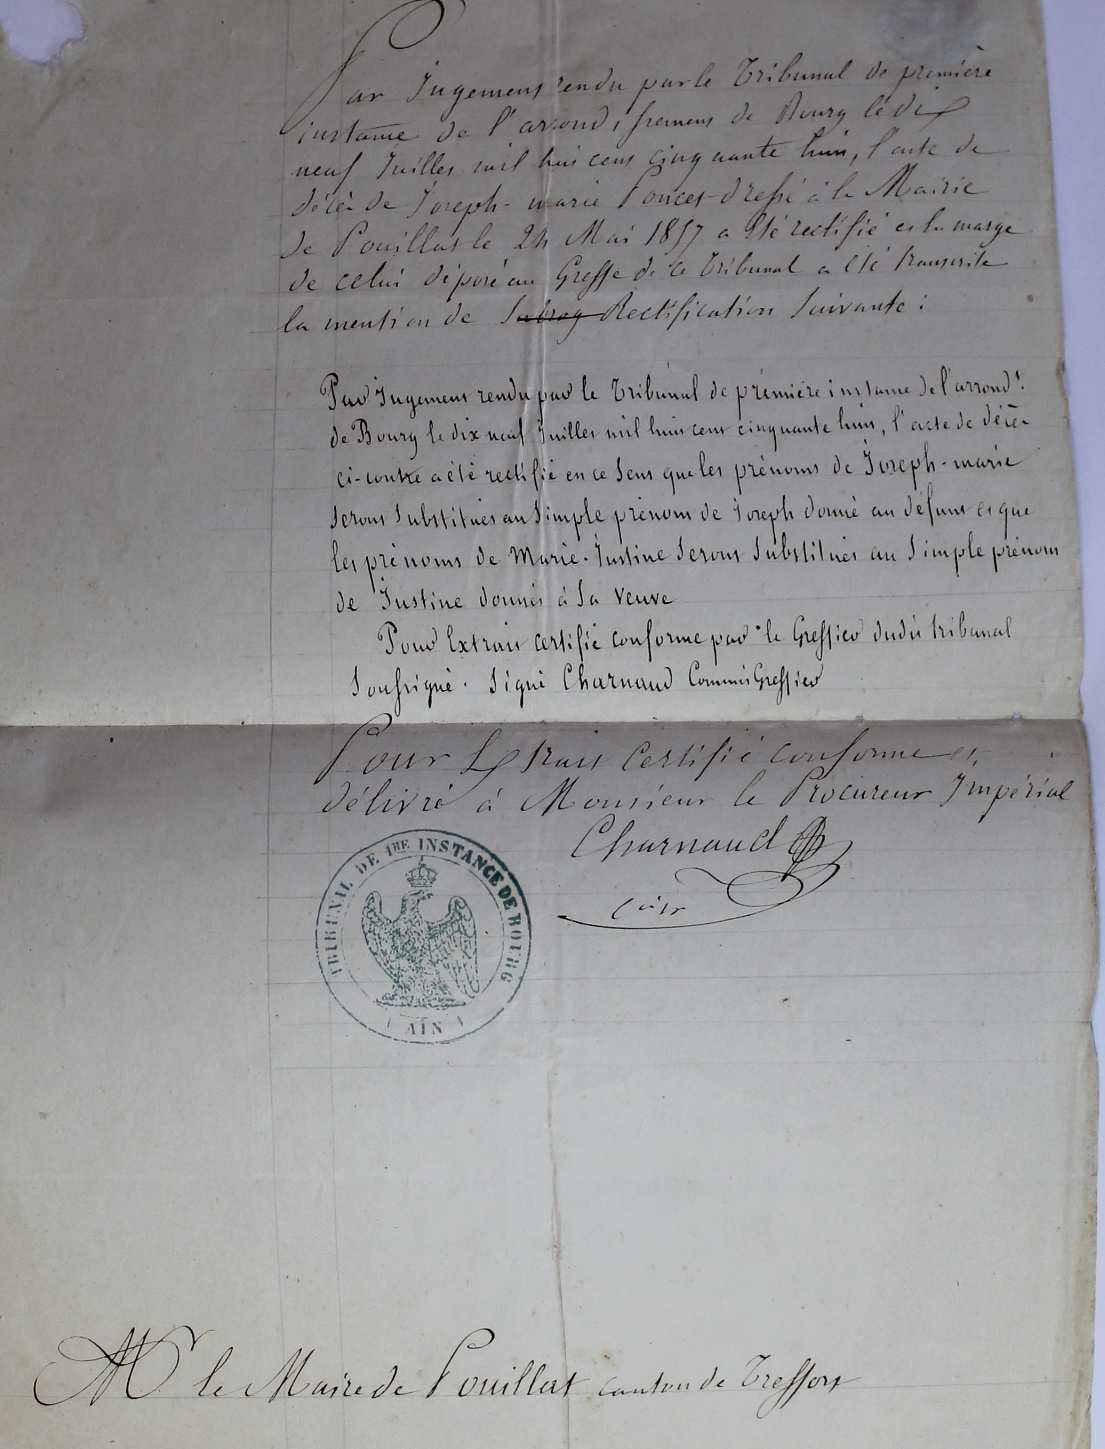 Par Jugement rendu par le Tribunal de première
instance de l'arrondissement de Bourg le dix
neuf Juillet mil huit cent cinquante huit, l'acte de
décès de Joseph-marie Poncet dressé à la Mairie
de Pouillat le 24 Mai 1857 a été rectifié et la marge
de celui déposé au Greffe de ce Tribunal a été transcrite
la mention de Subrog Rectification Suivante :
Par Jugement rendu par le Tribunal de première instance de l'arrondt.
de Bourg le dix neuf Juillet mil huit cent cinquante huit, l'acte de décès
ci-contre a été rectifié en ce sens que les prénoms de Joseph-marie
seront substitués au simple prénom de Joseph donné au défunt et que
les prénoms de Marie-Justine seront substitués au simple prénom
de Justine donnés à sa veuve
Pour Extrait certifié conforme par le Greffier dudit tribunal
soussigné. Signé Charnaud Commis Greffier
Pour Extrait certifié conforme et
délivré à Monsieur le Procureur Impérial
Charnaud
TRIBUNAL DE 1RE INSTANCE DE BOURG
AIN
Mr le Maire de Pouillat canton de Treffort